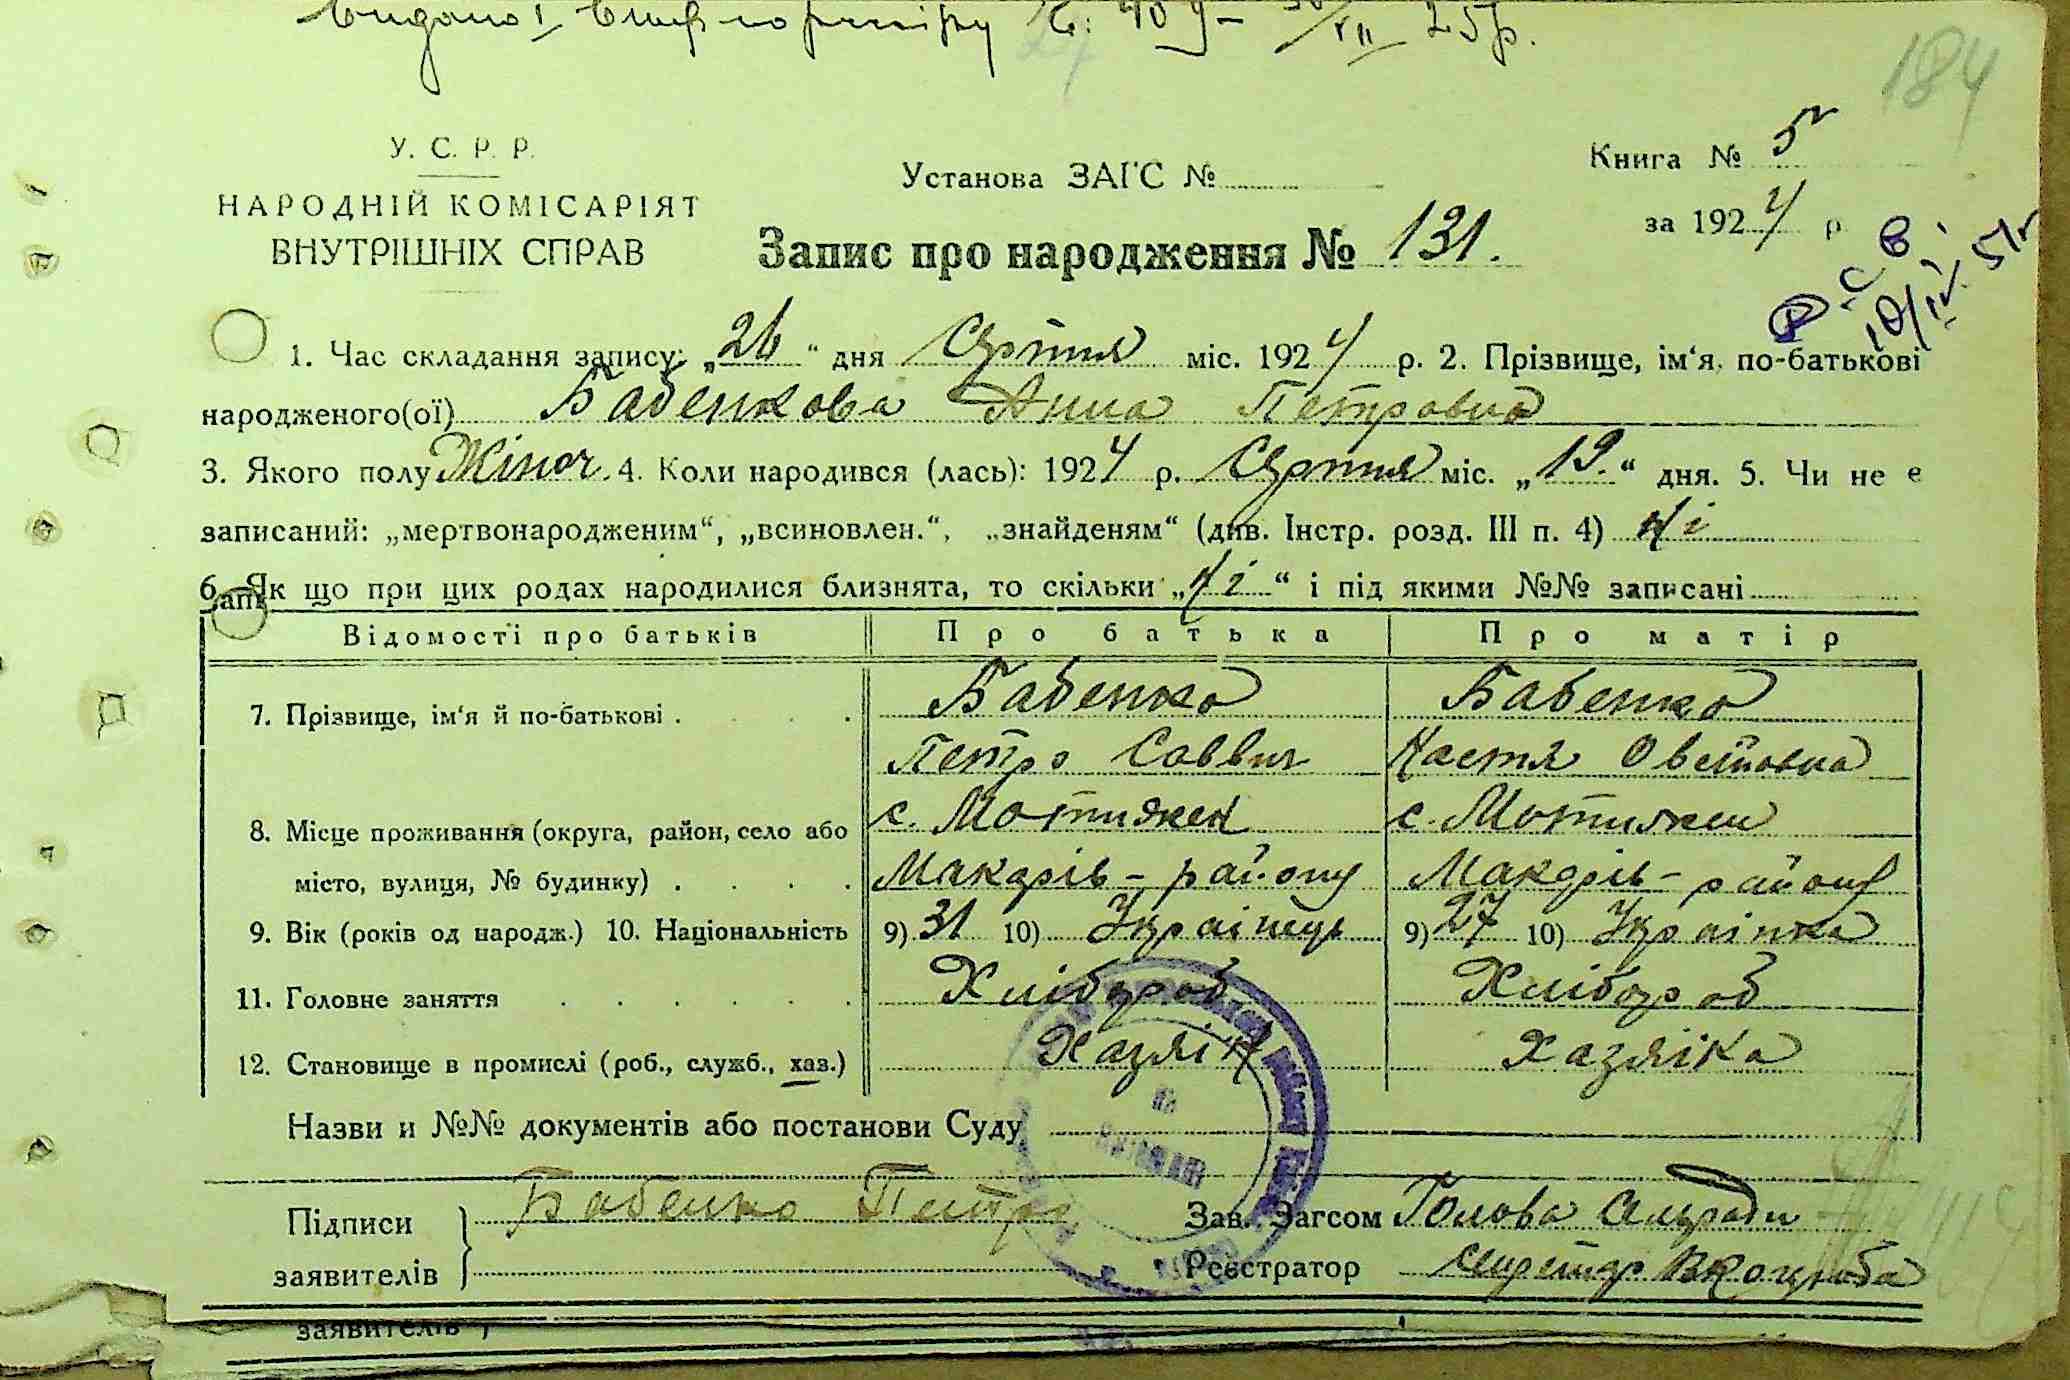 184
У. С. Р. Р.
НАРОДНІЙ КОМІСАРІЯТ
ВНУТРІШНІХ СПРАВ
Установа ЗАГС №
Книга № 5
за 1924 р
Запис про народження № 131.
1. Час складання запису: „26" дня Серпня міс. 1924 р. 2. Прізвище, ім'я, по-батькові
народженого(ої) Бабенкова Анна Петровна
3. Якого полу Жіноч. 4. Коли народився (лась): 1924 р. Серпня міс. „19." дня. 5. Чи не є
записаний: „мертвонародженим", „всиновлен.", „знайденям" (див. Інстр. розд. III п. 4) Ні
6. Як що при цих родах народилися близнята, то скільки „Ні" і під якими №№ записані
Відомості про батьків Про батька Про матір
7. Прізвище, ім'я й по-батькові . Бабенко Бабенко
Петро Саввич Настя
8. Місце проживання (округа, район, село або с. Мотижен с. Мотижен
місто, вулиця, № будинку) . Макарів-району Макарів-району
9. Вік (років од народж.) 10. Національність 9) 31 10) Українець 9) 27 10) Українка
11. Головне заняття Хлібороб Хлібороб
12. Становище в промислі (роб., служб., хаз.) Хазяїн Хазяїка
Назви и №№ документів або постанови Суду
Підписи Бабенко Петро Зав. Загсом Голова Сільради
заявителів Реєстратор Секретар В Коцюба
заявителів